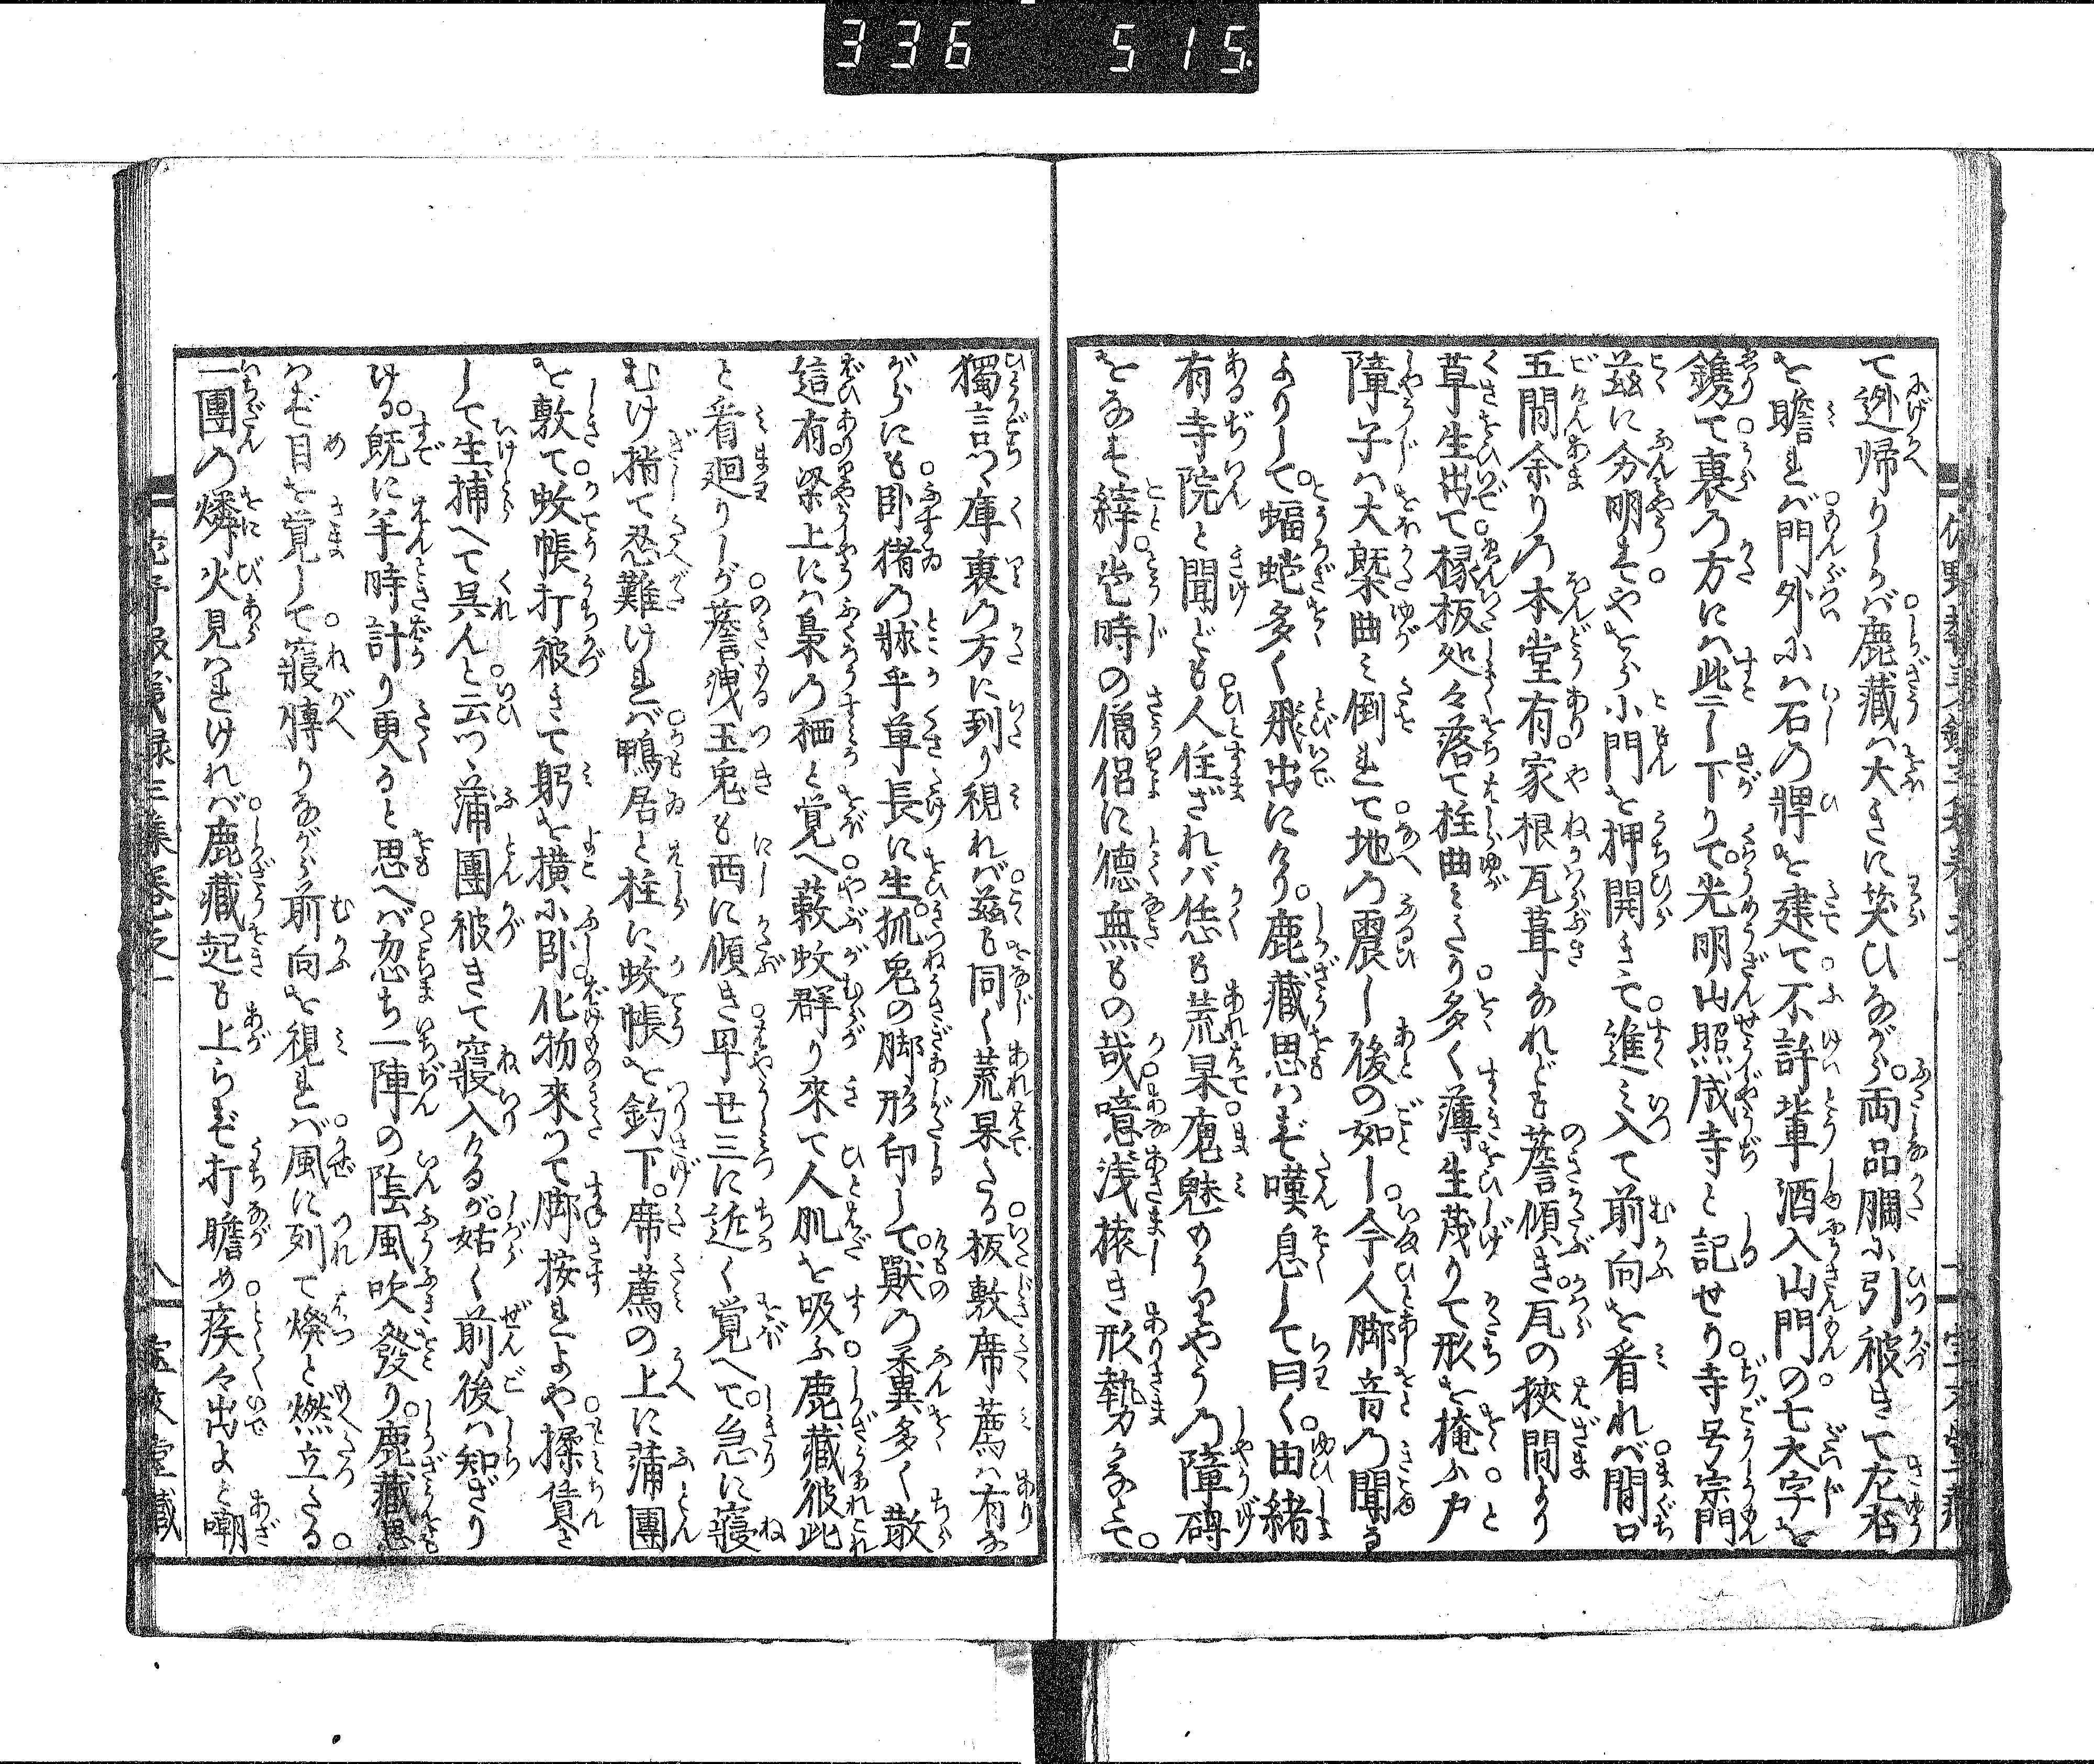 336 515
て迯帰りしが鹿藏ハ大きに笑ひながら両品胴に引被きて左右
を瞻れバ門外にハ石の碑を建て不許葷酒入山門の七大字を
鐫て裏の方にハ此二一下りて光明山照成寺と記せり寺号宗門
茲に分明れやをら小門を押開きて進ミ入て前向を看れバ間口
五間余りの本堂有家根瓦葺なれども簷傾き瓦の狹間より
草生出て椽板処々落て柱曲ミたり多く薄生茂りて形を掩ふ戸
障子ハ大槩曲ミ倒れて地の震し後の如し今人脚音の聞る
よりして蝠蛇多く飛出にけり鹿藏思はず嘆息して曰く由緒
有寺院と聞ども人住ざれバ恁も荒果魔魅のうりやうの障碍
をなす縡当時の僧侶に德無もの哉噫浅猿き形勢かなとて
獨言つゝ庫裏の方に到り視れバ茲も同く荒果たる板敷席薦ハ有な
がらにも卧猪の牀乎草長に生狐兎の脚形印して獸の糞多く散
這有梁上にハ梟の栖と覚へ藪蚊群り來て人肌を吸ふ鹿藏彼此
と看廻りしが簷洩玉兎も西に傾き早丑三に近く覚へて急に寢
むけ揣て忍難けれバ鴨居と柱に蚊帳を釣下席薦の上に蒲團
を敷て蚊帳打被きて躬を横に卧化物來つて脚按れよや揉賃に
して生捕へて呉んと云つゝ蒲團被きて寢入けるが姑く前後ハ知ざり
ける既に半時計り更ると思へバ忽ち一陣の陰風吹發り鹿藏思
ハず目を覚して寢轉りながら前向を視れバ風に列て燦と燃立たる
一團の燐火見はれけれバ鹿藏起も上らず打瞻め疾々出よと嘲